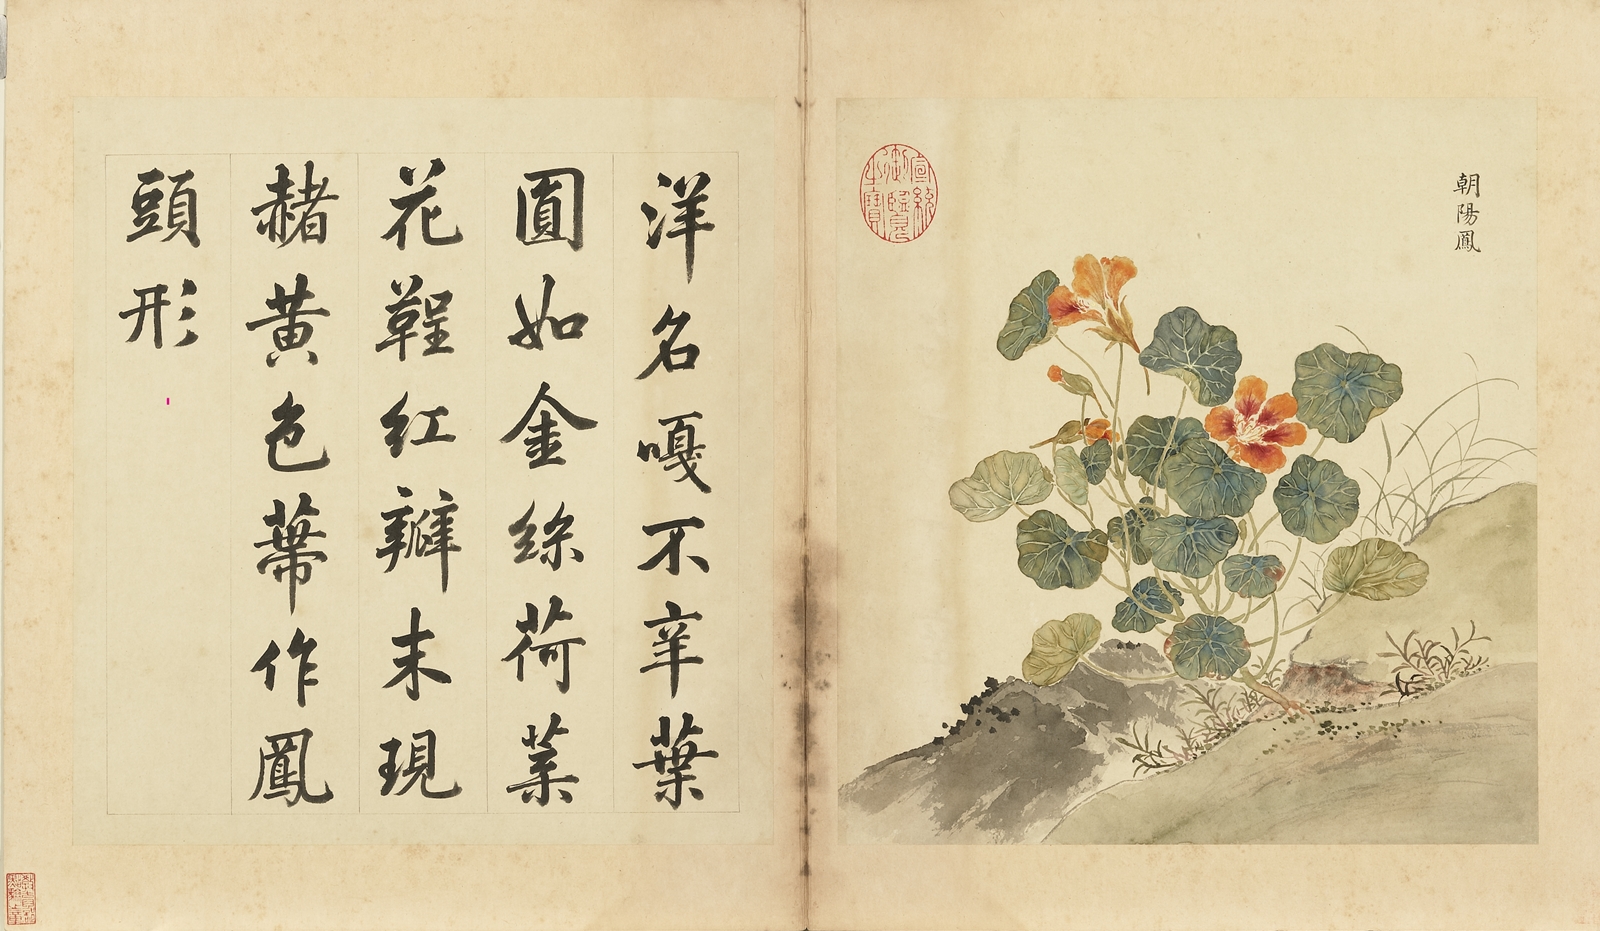 朝陽鳳
宣統御覽之寶
洋名嘎不辛葉
圓如金絲荷葉
花鞓紅瓣末現
赭黃色蒂作鳳
頭形